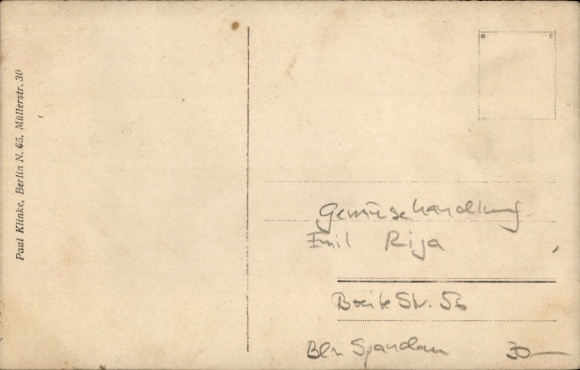 Paul Klinke, Berlin N. 65, Müllerstr. 30
Gemüsehandlung
Emil Rija
Breite Str. 56
Bln Spandau 30—